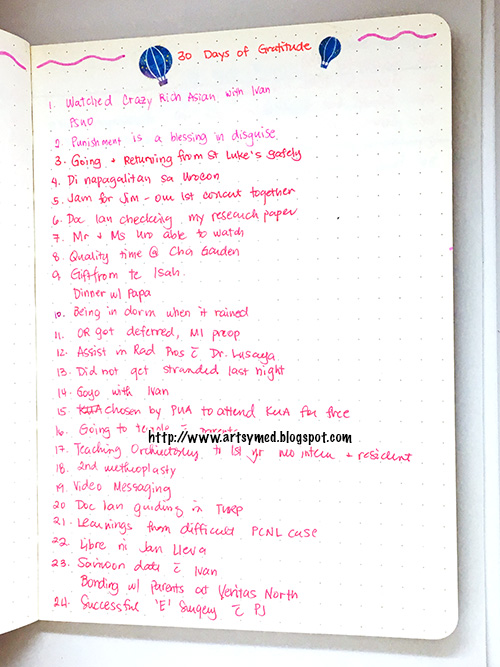 30 Days of Gratitude
1. Watched Crazy Rich Asian with Ivan
PSNO
2. Punishment is a blessing in disguise
3. Going + Returning from St Luke's safely
4. Di napagalitan sa Urocon
5. Jam for Jim - our 1st concert together
6. Doc Ian checking my research paper
7. Mr & Ms Uro able to watch
8. Quality time @ Cha Garden
9. Gift from te Isah.
Dinner w/ Papa
10. Being in dorm when it rained
11. OR got deferred, MI preop
12. Assist in Rad Pros c̄ Dr. Lusaya
13. Did not get stranded last night
14. Goyo with Ivan
15. chosen by PUA to attend KUA for free
16. Going to
http://www.artsymed.blogspot.com
17. Teaching Orchiectomy to 1st yr intern + resident
18. 2nd urethroplasty
19. Video Messaging
20. Doc Ian guiding in TURP
21. Learnings from difficult PCNL case
22. Libre ni Jan Lleva
23. date c̄ Ivan
Bonding w/ parents at Veritas North
24. Successful 'E' Surgery c̄ PJ